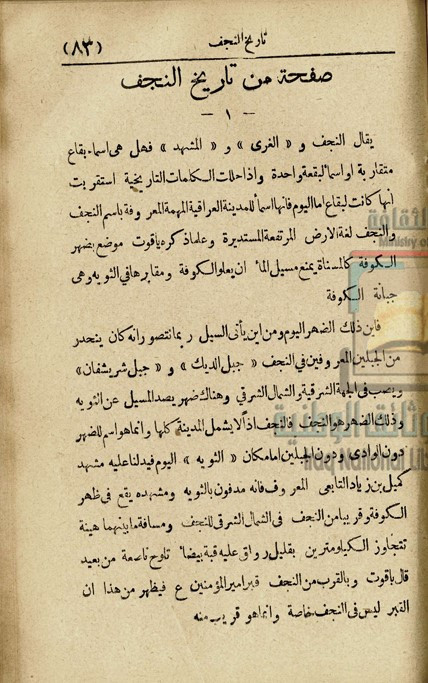 تاريخ النجف
(٨٣)
صفحة من تاريخ النجف
— ١ —
يقال النجف و « الغرى » و « المشهد » فهل هى اسماء بقاع
متقاربة او اسماء لبقعة واحدة واذا حللت الكلمات التاريخية استقريت
انها كانت لبقاع اما اليوم فانها اسماء للمدينة العراقية المهمة المعروفة باسم النجف
والنجف لغة الارض المرتفعة المستديرة وعلى ما ذكره ياقوت موضع بضهر
الكوفة كالمسناة يمنع مسيل الماء ان يعلو الكوفة ومقابرها فى الثويه وهى
جبانة الكوفة
فاين ذلك الضهر اليوم ومن اين يأتى السيل ربما نتصور انه كان ينحدر
من الجبلين المعروفين في النجف « جبل الديك » و « جبل شريشفان»
ويصب فى الجهة الشرقية والشمال الشرقي وهناك ضهر يصد المسيل عن الثويه
وذلك الضهر هو النجف فالنجف اذاً لا يشمل المدينة كلها وانما هو اسم للضهر
دون الوادى ودون الجبلين اما مكان « الثويه » اليوم فيدلنا عليه مشهد
كميل بن زياد التابعى المعروف فانه مدفون بالثويه ومشهده يقع فى ظهر
الكوفة وقريبا من النجف فى الشمال الشرقى للنجف ومسافة ما بينهما هينة
تتجاوز الكيلومترين بقليل رواق عليه قبة بيضاء تلوح ناصعة من بعيد
قال ياقوت وبالقرب من النجف قبر امير المؤمنين ع فيظهر من هذا ان
القبر ليس فى النجف خاصة وانما هو قريب منه
الثقافة
Ministry of
الوثائق الوطنية
Iraq National Lib